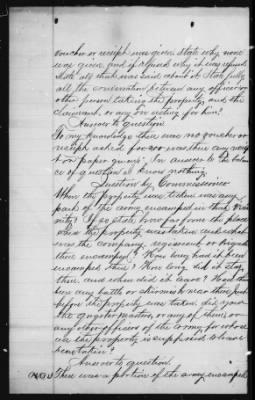 voucher or receipt was given state why none
was given, and if refused why it was refused
State all that was said about it. State fully
all the conversation between any officer or
other person taking the property, and the
claimant, or any one acting for him?
Answer to question
To my knowledge there was no voucher or
receipt asked for nor was there any receip
t or paper given. In answer to the balan
ce of question I know nothing.
Question by Commissioner
When the property was taken was any
part of the army encamped in that vicin
ity? If so state how far from the place
where the property was taken and what
was the company, regiment or brigade
there encamped? How long had it been
encamped there? How long did it stay
there, and when did it leave? Had there
been any battle or skirmish near there just
before the property was taken did you
the quartermaster, or any of them, or
any other officers of the army for whose
use the property is supposed to have
been taken?
Answer to question
There was a portion of the army encamped